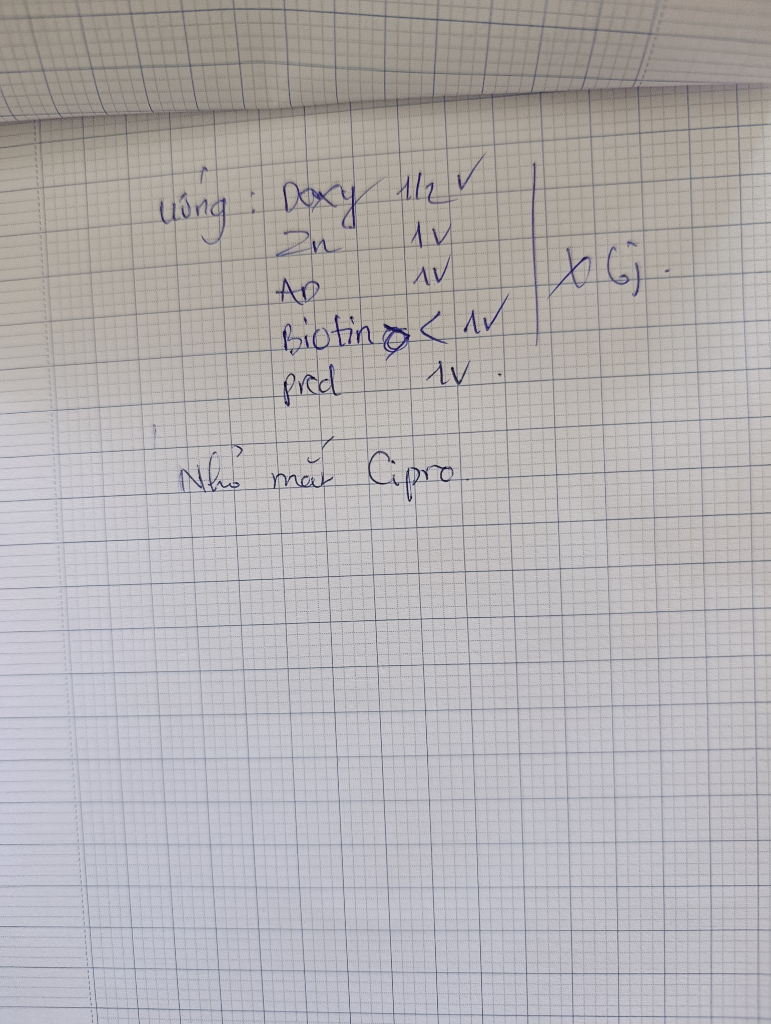 uống : Doxy 1/2 V
Zn 1V
AD 1V
Biotin < 1V
x 6j.
pred 1V.
Nhỏ mắt Cipro.